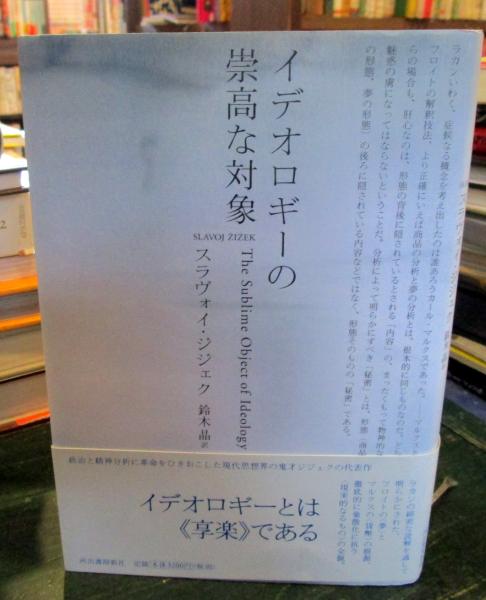 ラカンいわく、症候なる概念を考え出したのは誰あろうカール・マルクスであった。
フロイトの解釈技法、より正確にいえば商品の分析と夢の分析とは、根本的に同じものなのだ。どち
らの場合も、肝心なのは、形態の背後に隠されているとされる「内容」の、まったくもって物神的な
魅惑の虜になってはならないということだ。分析によって明らかにすべき「秘密」とは、形態（商品
の形態、夢の形態）の後ろに隠されている内容などではなく、形態そのものの「秘密」である。
イデオロギーの
崇高な対象
SLAVOJ ŽIŽEK
The Sublime Object of Ideology
スラヴォイ・ジジェク
鈴木晶 訳
政治と精神分析に革命をひきおこした現代思想界の鬼才ジジェクの代表作
イデオロギーとは
《享楽》である
ラカンの綿密な読解を通して
明らかにされた、
フロイトの〈夢〉と
マルクスの〈貨幣〉の根源。
徹底的に象徴化に抗う
〈現実的なるもの〉の全貌。
河出書房新社
定価(本体3200円+税)